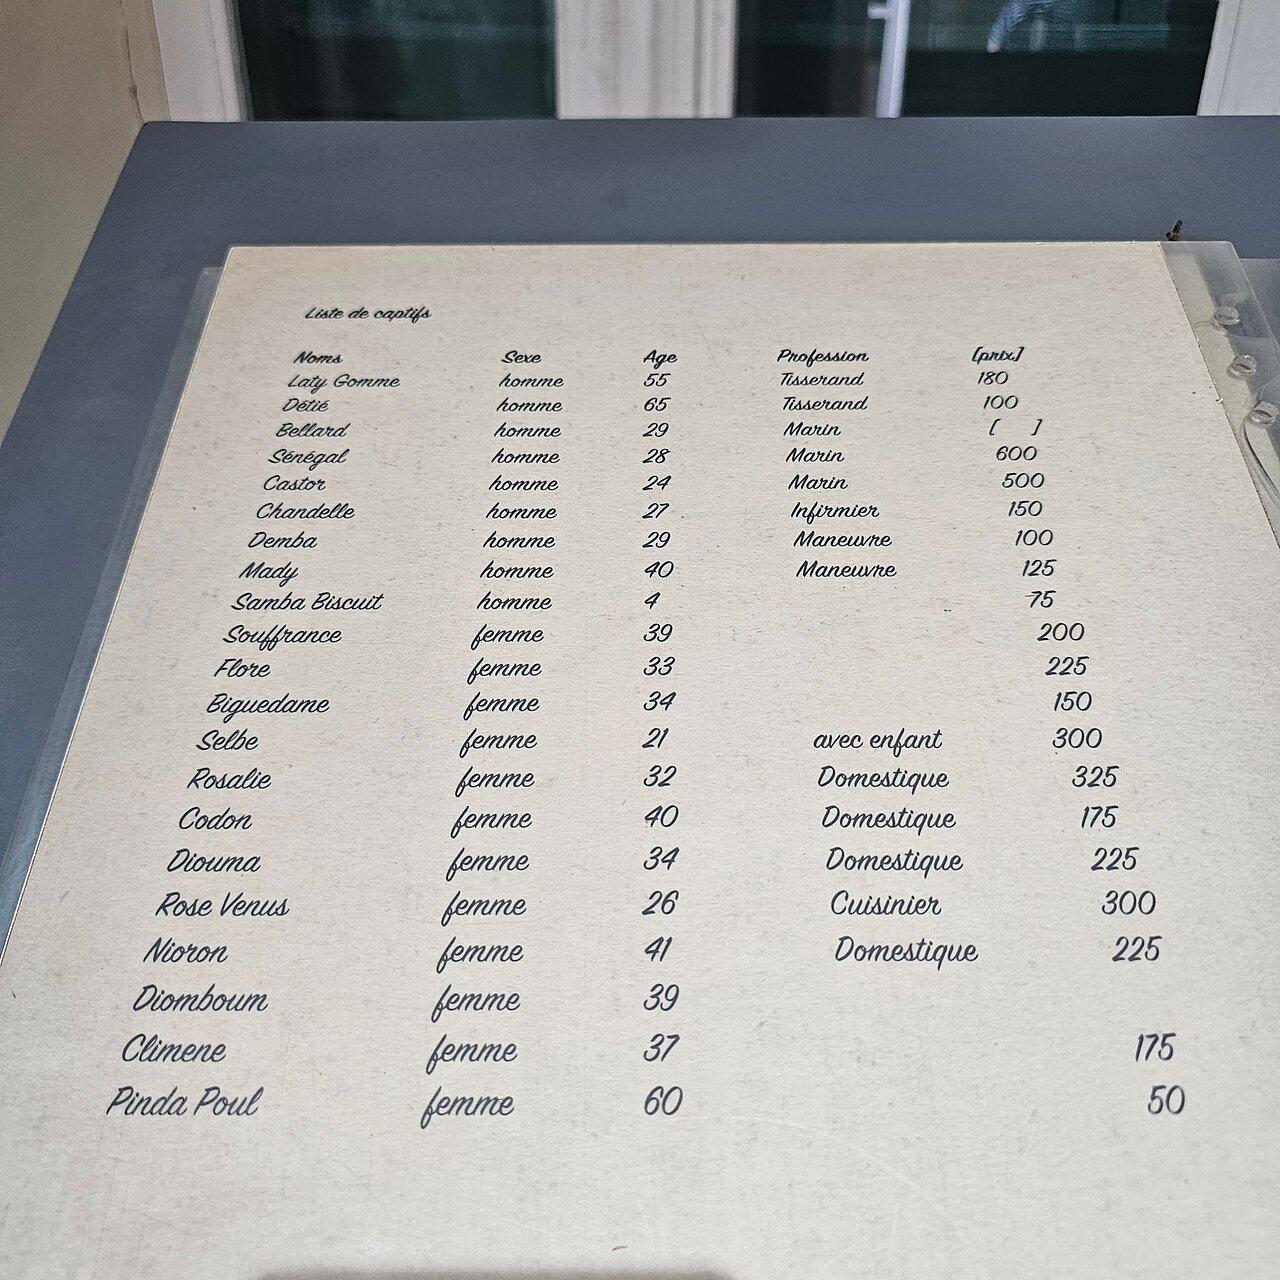 Liste de captifs
Noms Sexe Age Profession [prix]
Laty Gomme homme 55 Tisserand 180
Détié homme 65 Tisserand 100
Bellard homme 29 Marin [ ]
Sénégal homme 28 Marin 600
Castor homme 24 Marin 500
Chandelle homme 27 Infirmier 150
Demba homme 29 Maneuvre 100
Mady homme 40 Maneuvre 125
Samba Biscuit homme 4 75
Souffrance femme 39 200
Flore femme 33 225
Biguedame femme 34 150
Selbe femme 21 avec enfant 300
Rosalie femme 32 Domestique 325
Codon femme 40 Domestique 175
Diouma femme 34 Domestique 225
Rose Venus femme 26 Cuisinier 300
Nioron femme 41 Domestique 225
Diomboum femme 39
Climene femme 37 175
Pinda Poul femme 60 50